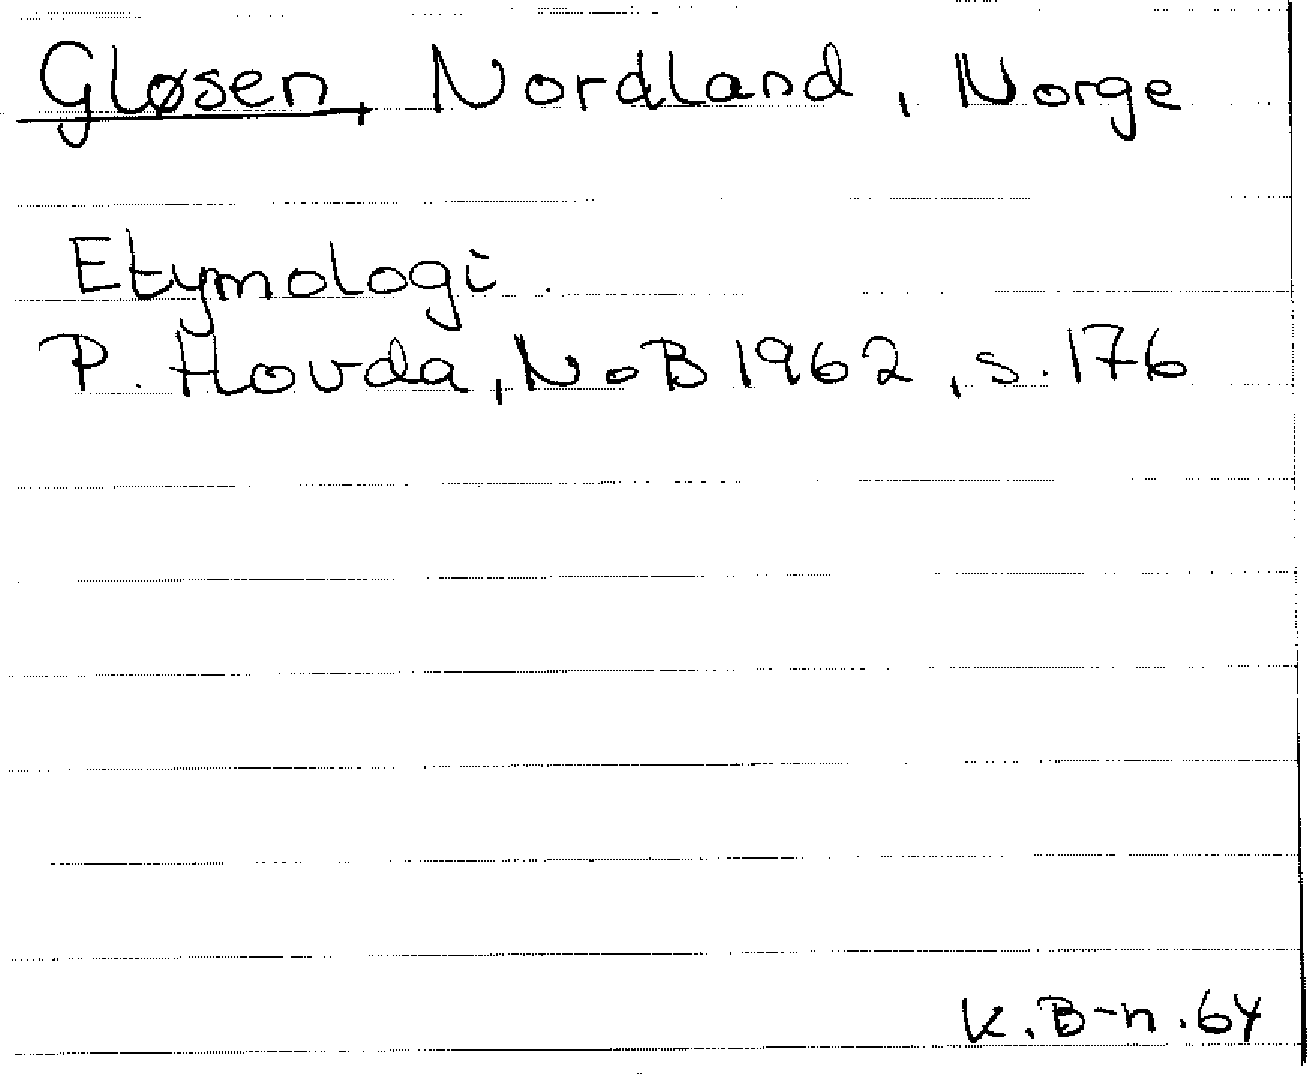 Gløsen, Nordland, Norge
Etymologi.
P. Hovda, NoB 1962, s. 176
K. B-n. 64